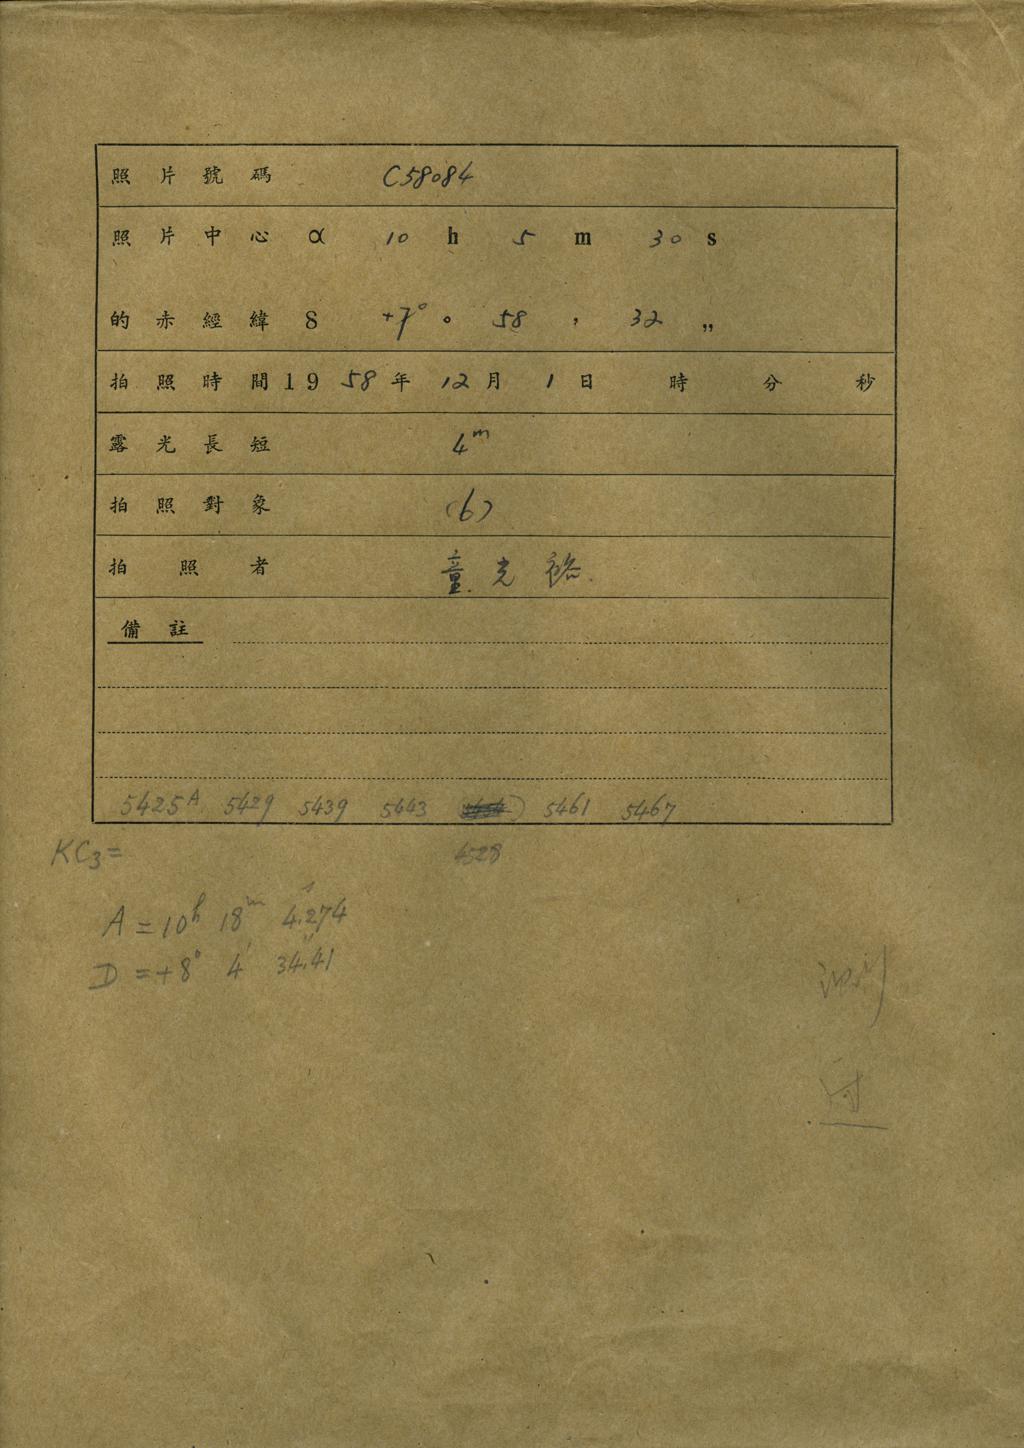 照片號碼 C58084
照片中心 α 10 h 5 m 30 s
的赤經緯 δ +7° ° 58 ′ 32 ″
拍照時間 1958年 12月 1日 時 分 秒
露光長短 4m
拍照對象 (6)
拍照者 童光裕.
備註
5425A 5429 5439 5443 5461 5467
KC3=
A = 10h 18m 4s.274
D = +8° 4′ 34″.41
测
过